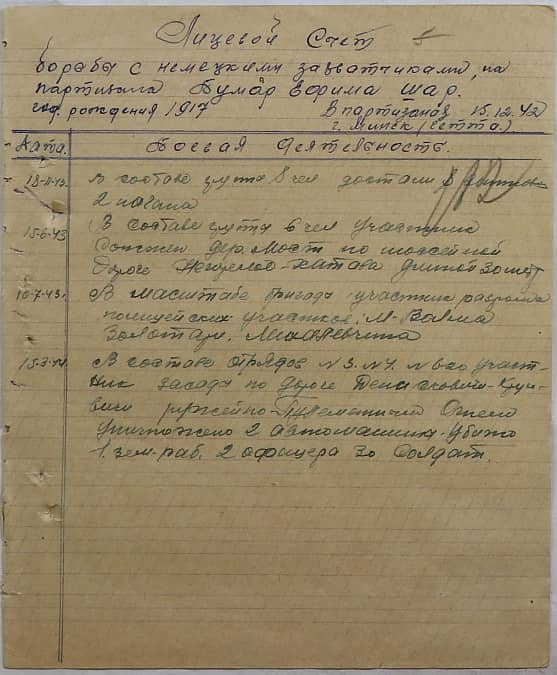 Лицевой Счет
борьбы с немецкими захватчиками, на
партизана Тумар Ефима Шар.
год рождения 1917 В партизанах 15.12.42
г. Минск (гетто.)
Дата. Боевая Деятельность.
18-11-43. В составе группы 8 чел достали
2 нагана
15-6-43 В составе группы 6 чел участник
Сожжен дер. Мост по шоссейной
Дороге длиной 30 метр
10-7-43г. В масштабе бригады участник разгрома
полицейских участков: М. Волма
Золотари, Михалевщина
15-3-44. В составе отрядов N 3. N 4. участ-
ник засады по Дороге
ружейно-Пулеметным Огнем
Уничтожено 2 автомашины-Убито
1. зем-раб. 2 офицера 30 Солдат.